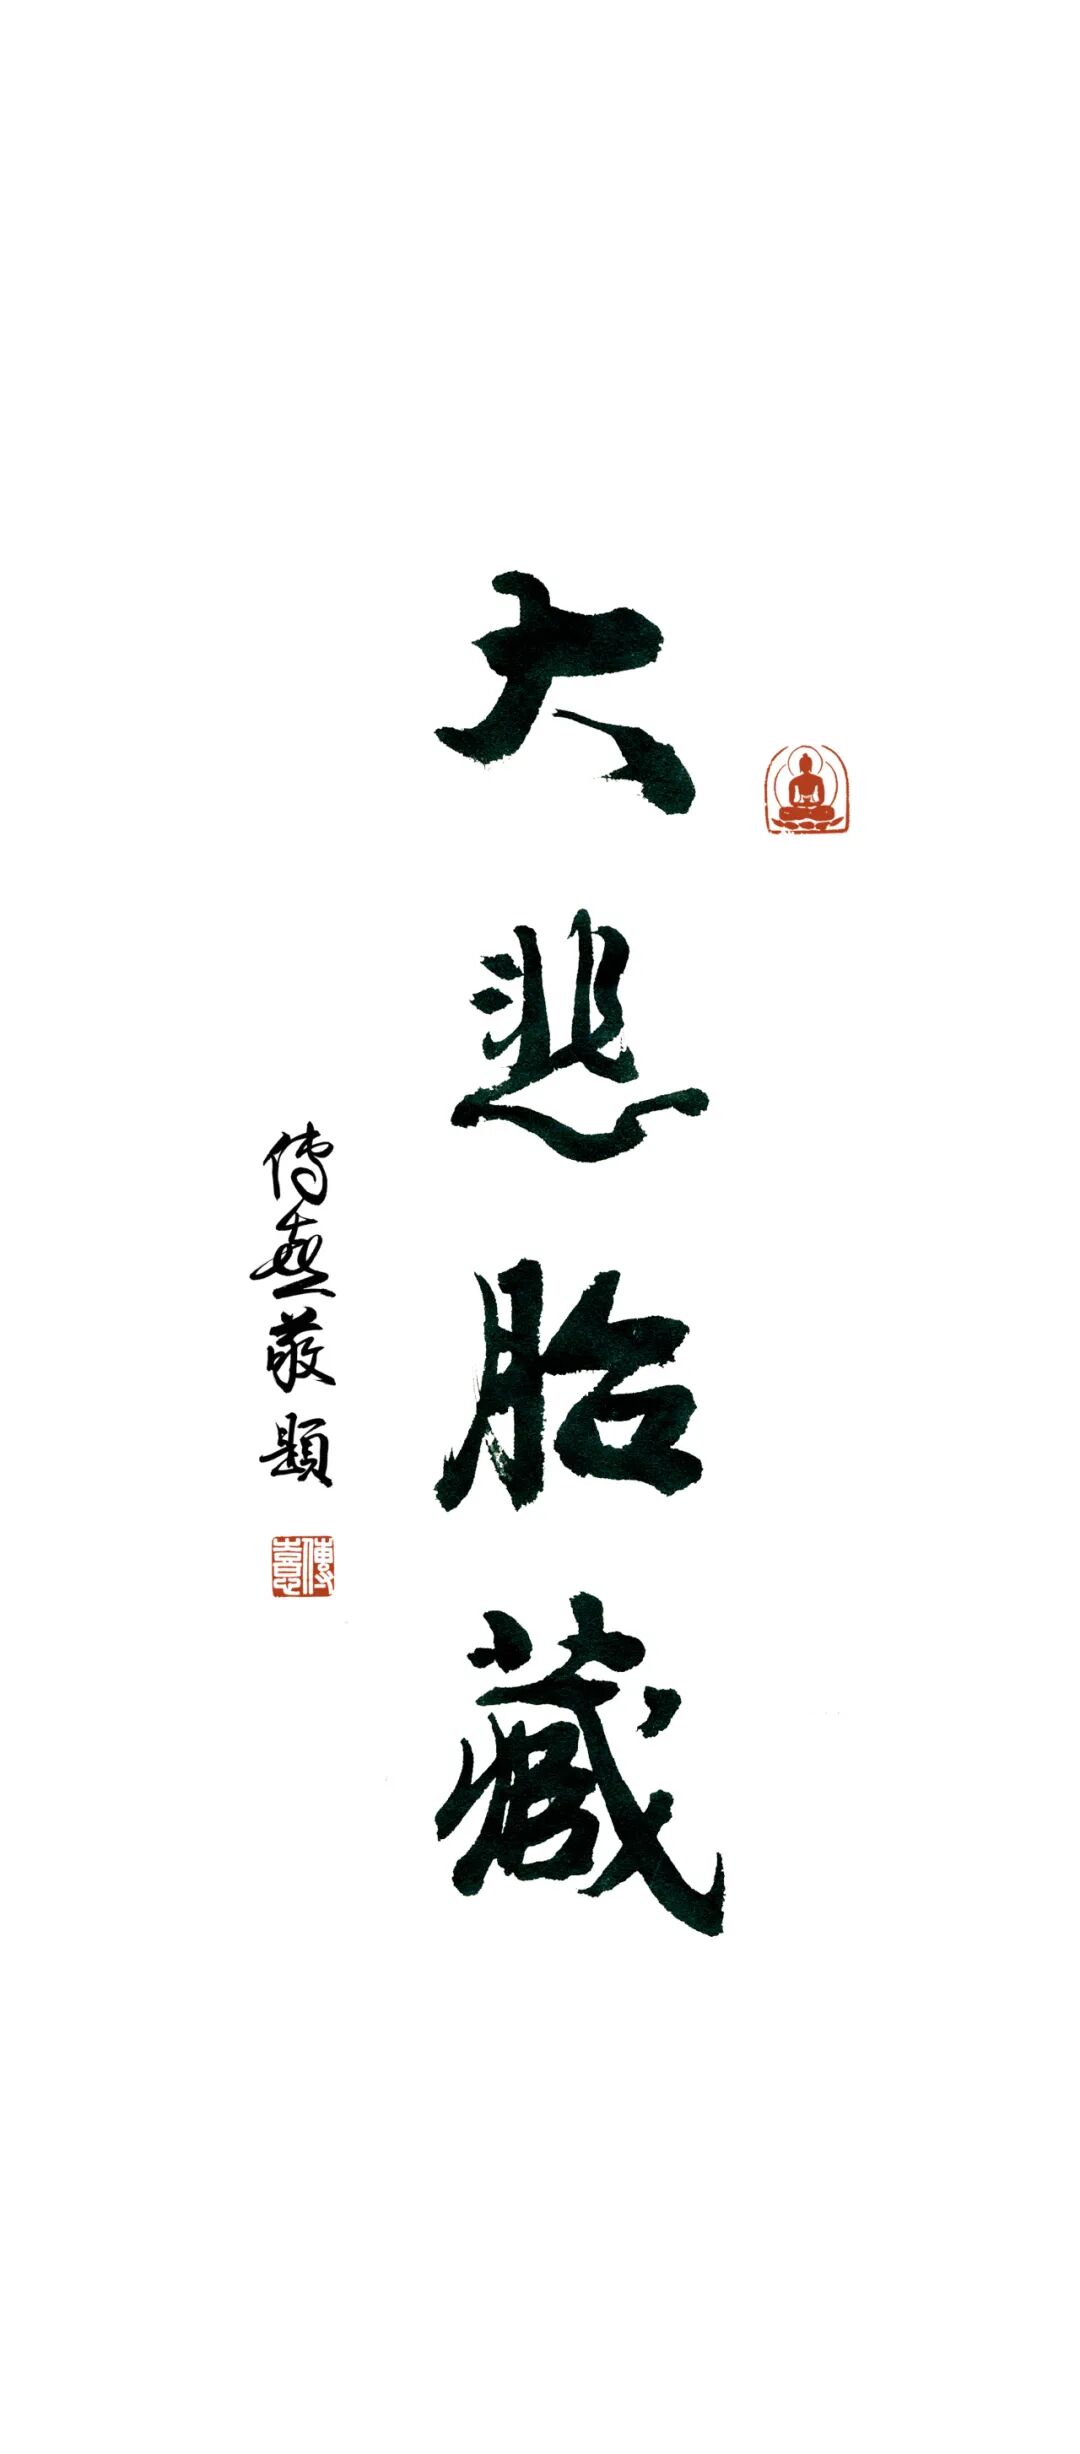 大悲胎藏
傳喜敬題
傳喜